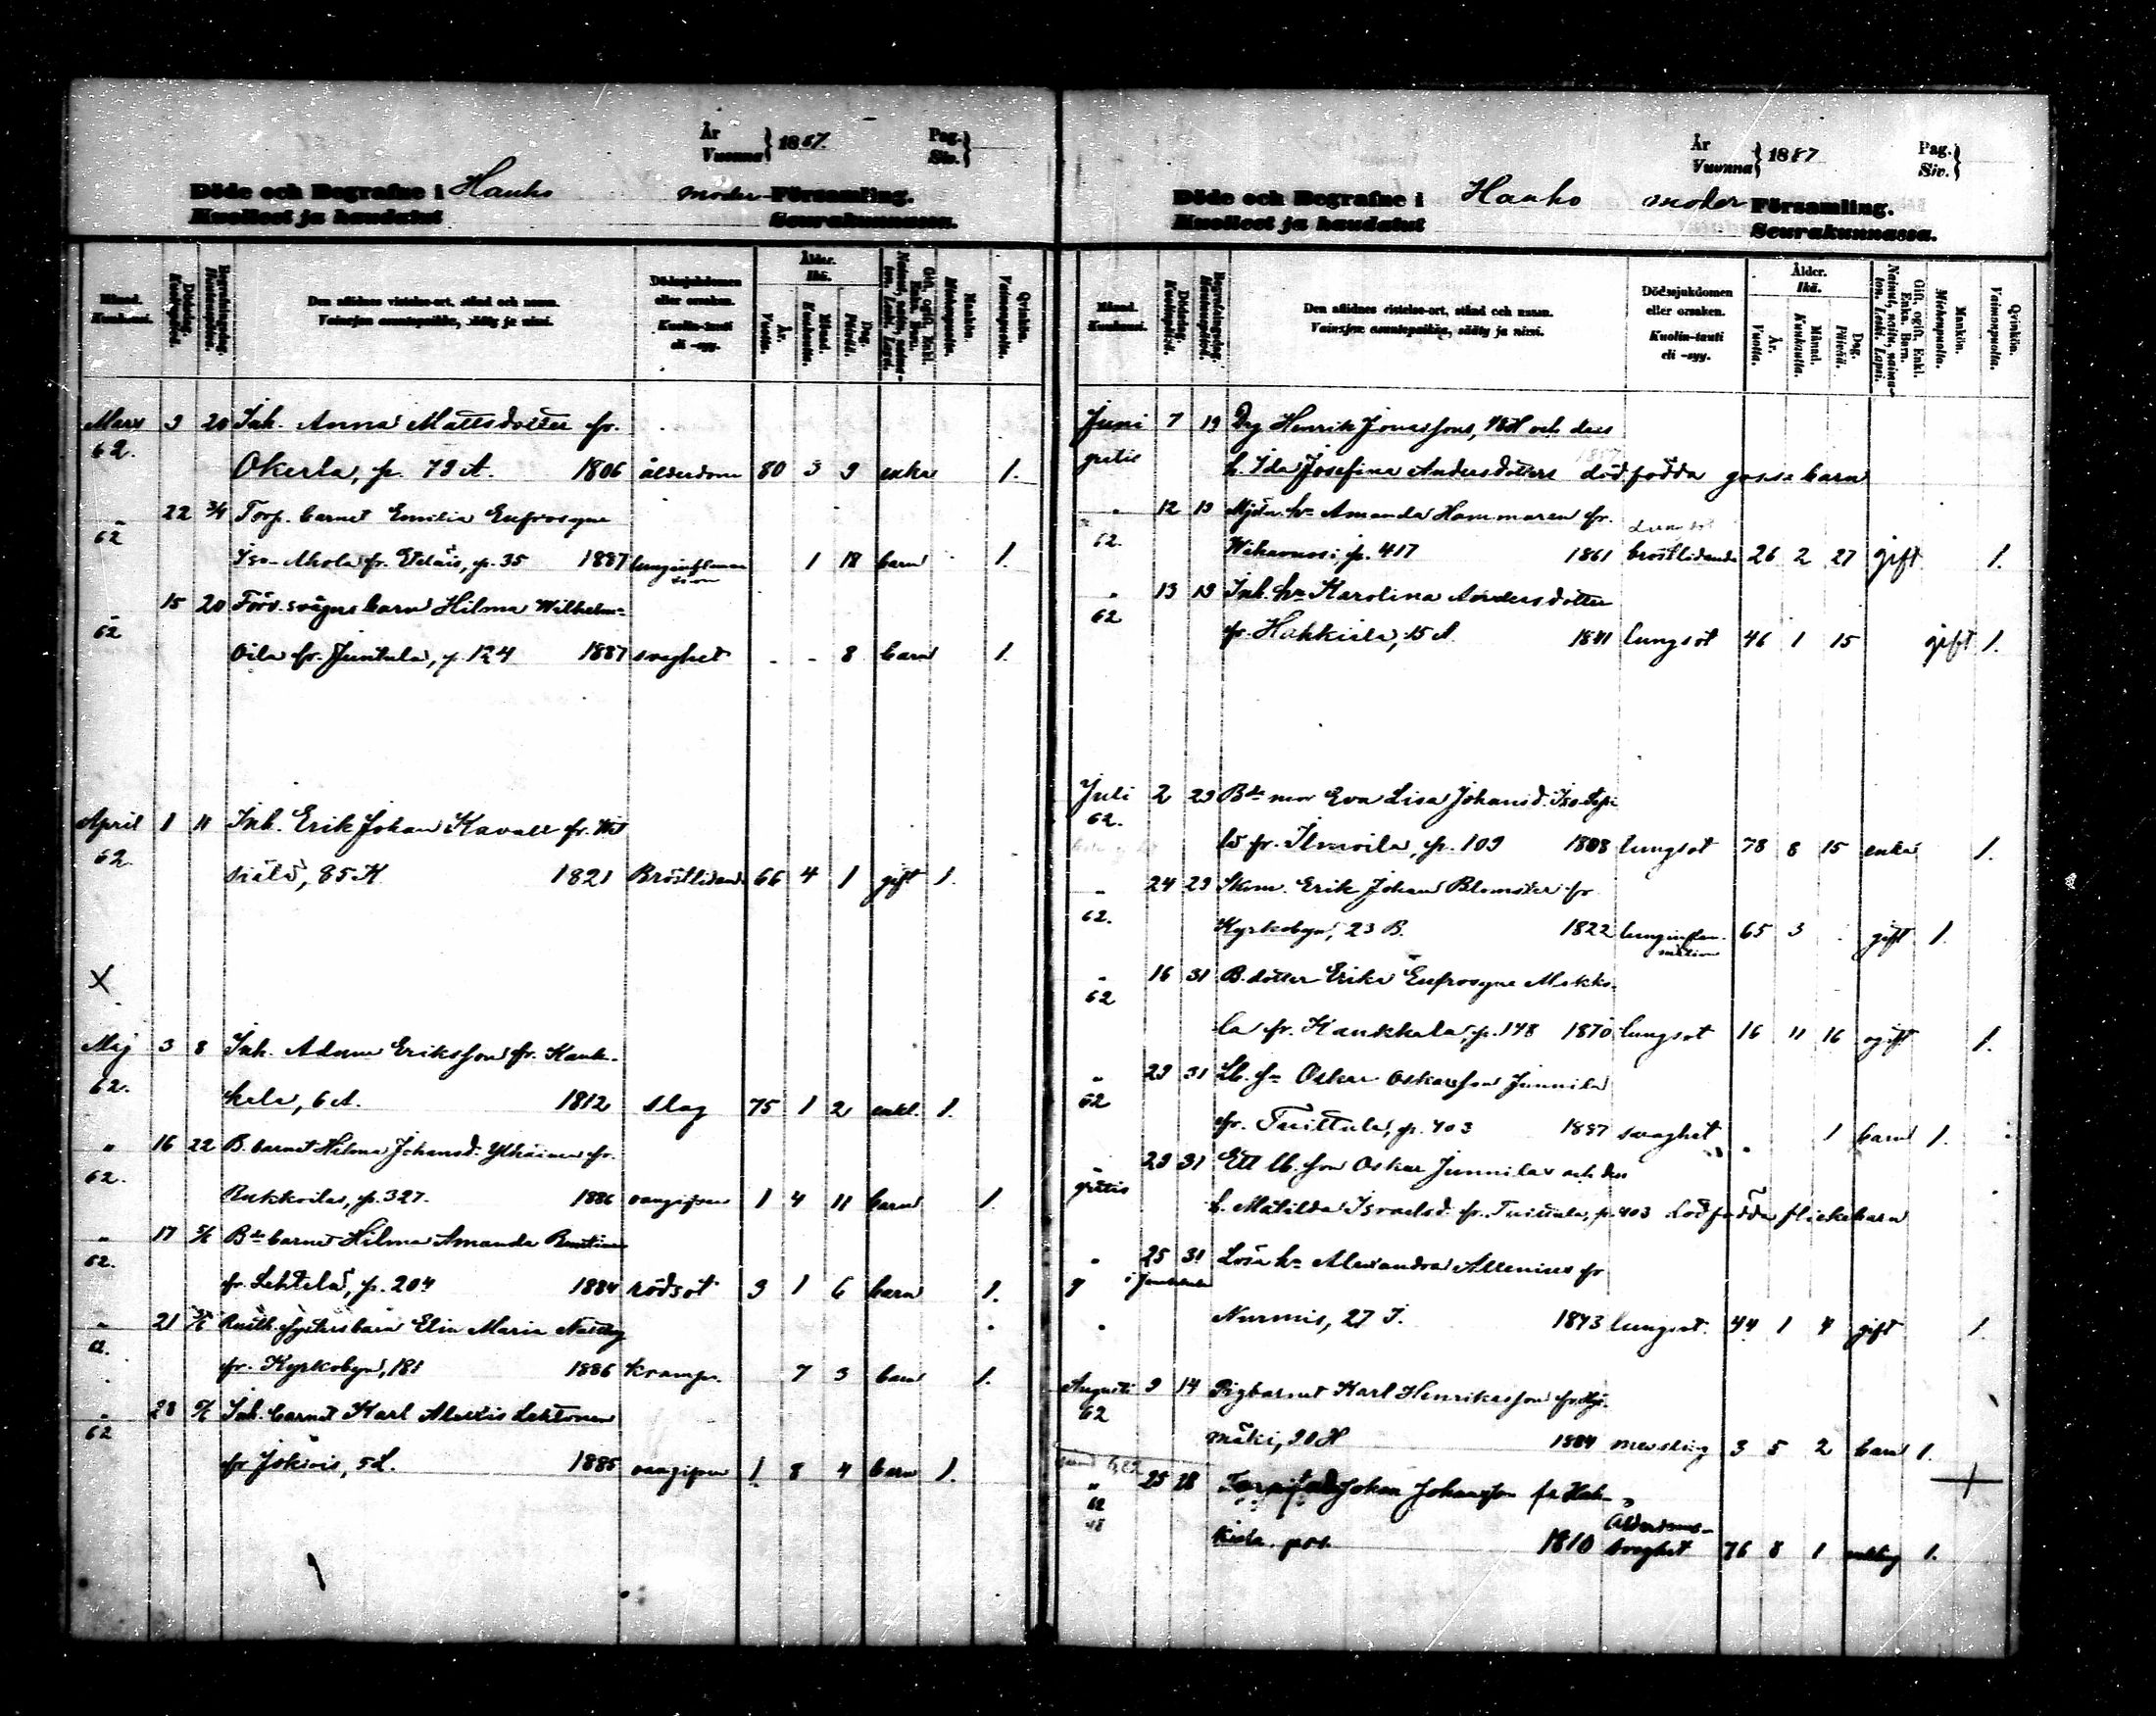 År
Vuonna } 1887.
Pag.
Siv. }
Döde och Begrafne i Hauho moder-Församling.
Kuolleet ja haudatut Seurakunnassa.
Månad. Kuukausi.
Dödsdag. Kuolinpäivä.
Begrafningsdag. Hautauspäivä.
Den aflidnes vistelse-ort, stånd och namn.
Vainajan asuntopaikka, sääty ja nimi.
Dödssjukdomen eller orsaken.
Kuolin-tauti eli -syy.
Ålder. Ikä.
År. Vuotta.
Månad. Kuukautta.
Dag. Päivää.
Gift, ogift, Enkl. Enka. Barn.
Mankön. Miehenpuolta.
Qvinkön. Vaimonpuolta.
Mars 9 20 Inh. Anna Mattsdotter fr.
62. Okerla, p. 79 A. 1806 ålderdom 80 3 9 enka 1.
22 3/4 Torp. barnet Emilia Eufrosyne
62 Iso-Mkola fr. Eteläis, p. 35 1887 lunginflammation 1 18 barn 1.
15 20 svägers barn Hilma Wilhelm-
62 Oila fr. Juntula, p. 124 1887 svaghet - - 8 barn 1.
April 1 11 Inh. Erik Johan Kavall fr.
62. 85 K 1821 Bröstlidande 66 4 1 gift 1.
X
Maj 3 8 Inh. Adam Eriksson fr. Kauk-
62. kala, 6 A. 1812 slag 75 1 2 enkl. 1.
" 16 22 B. barnet Hilma Johansd.
62. Rukkoila, p. 327. 1886 1 4 11 barn 1.
" 17 5/6 Bde barnet Hilma Amanda
62. fr. Lehtelä, p. 204 1884 rödsot 3 1 6 barn 1.
" 21 Rusth. systers barn Elin Maria
62. fr. Kyrkobyn, 181 1886 kramp. 7 3 barn 1.
" 28 5/6 Inh. barnet Karl Alexis Lehtonen
62 fr. Jokiois, 5 L. 1885 1 8 4 barn 1.
År
Vuonna } 1887
Pag.
Siv. }
Döde och Begrafne i Hauho moder Församling.
Kuolleet ja haudatut Seurakunnassa.
Månad. Kuukausi.
Dödsdag. Kuolinpäivä.
Begrafningsdag. Hautauspäivä.
Den aflidnes vistelse-ort, stånd och namn.
Vainajan asuntopaikka, sääty ja nimi.
Dödssjukdomen eller orsaken.
Kuolin-tauti eli -syy.
Ålder. Ikä.
År. Vuotta.
Månad. Kuukautta.
Dag. Päivää.
Gift, ogift, Enkl. Enka. Barn.
Mankön. Miehenpuolta.
Qvinkön. Vaimonpuolta.
Juni 7 19 Drg Henrik Jonassons, och dess
gratis h. Ida Josefina Andersdotters dödfödda gosse barn
" 12 19 Mjöln. hu Amanda Hammaren fr.
62. Wihavuosi p. 417 1861 bröstlidande 26 2 27 gift 1.
" 13 19 Inh. hu Karolina Andersdotter
62 fr. Hahkiala, 15 A. 1841 lungsot 46 1 15 gift 1.
Juli 2 23 Bde mor Eva Lisa Johansd. Iso-Sepi
62. lä fr. Ilmoila, p. 109 1808 lungsot 78 8 15 enka 1.
" 24 29 Skom. Erik Johan Blomster fr
62. Kyrkobyn, 23 B. 1822 lunginflammation 65 3 . gift 1.
" 16 31 B. dotter Erika Eufrosyne Mekko-
62 la fr. Kaukkala, p. 148 1870 lungsot 16 11 16 ogift 1.
" 23 31 Lb. sn Oskar Oskarsson Junnila
62 fr. Tuittula, p. 403 1887 svaghet 1 barn 1.
23 31 Ett lb. son Oskar Junnilas och dess
gratis h. Matilda Israelsd. fr. Tuittula, p. 403 dödfödda flickebarn
" 25 31 Lösa hu Alexandra Allenius fr
Nurmis, 27 I. 1843 lungsot. 44 1 4 gift 1.
Augusti 9 14 Pigbarnet Karl Henriksson fr.
62 mäki, 90 H 1884 messling 3 5 2 barn 1.
" 25 28 Johan Johansson fr Hah-
62 kiala 1810 Ålderdoms-
svaghet 76 8 1 1.